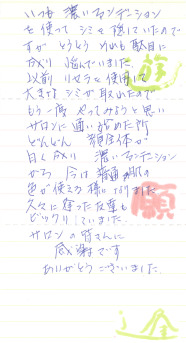 いつも 濃いファンデーション
を使って シミを 隠していたので
すが とうとう それも駄目に
なり 悩んでいました。
以前 リセラを 使用して
大きな シミが 取れたので
もう一度 やってみようと思い
サロンに 通い始めた所
どんどん 顔全体が
白くなり 濃いファンデーション
から 今は 普通の肌の
色が使える様になりました
久々に 逢った友達も
ビックリしていました。
サロンの皆さんに
感謝です
ありがとうございました。
願